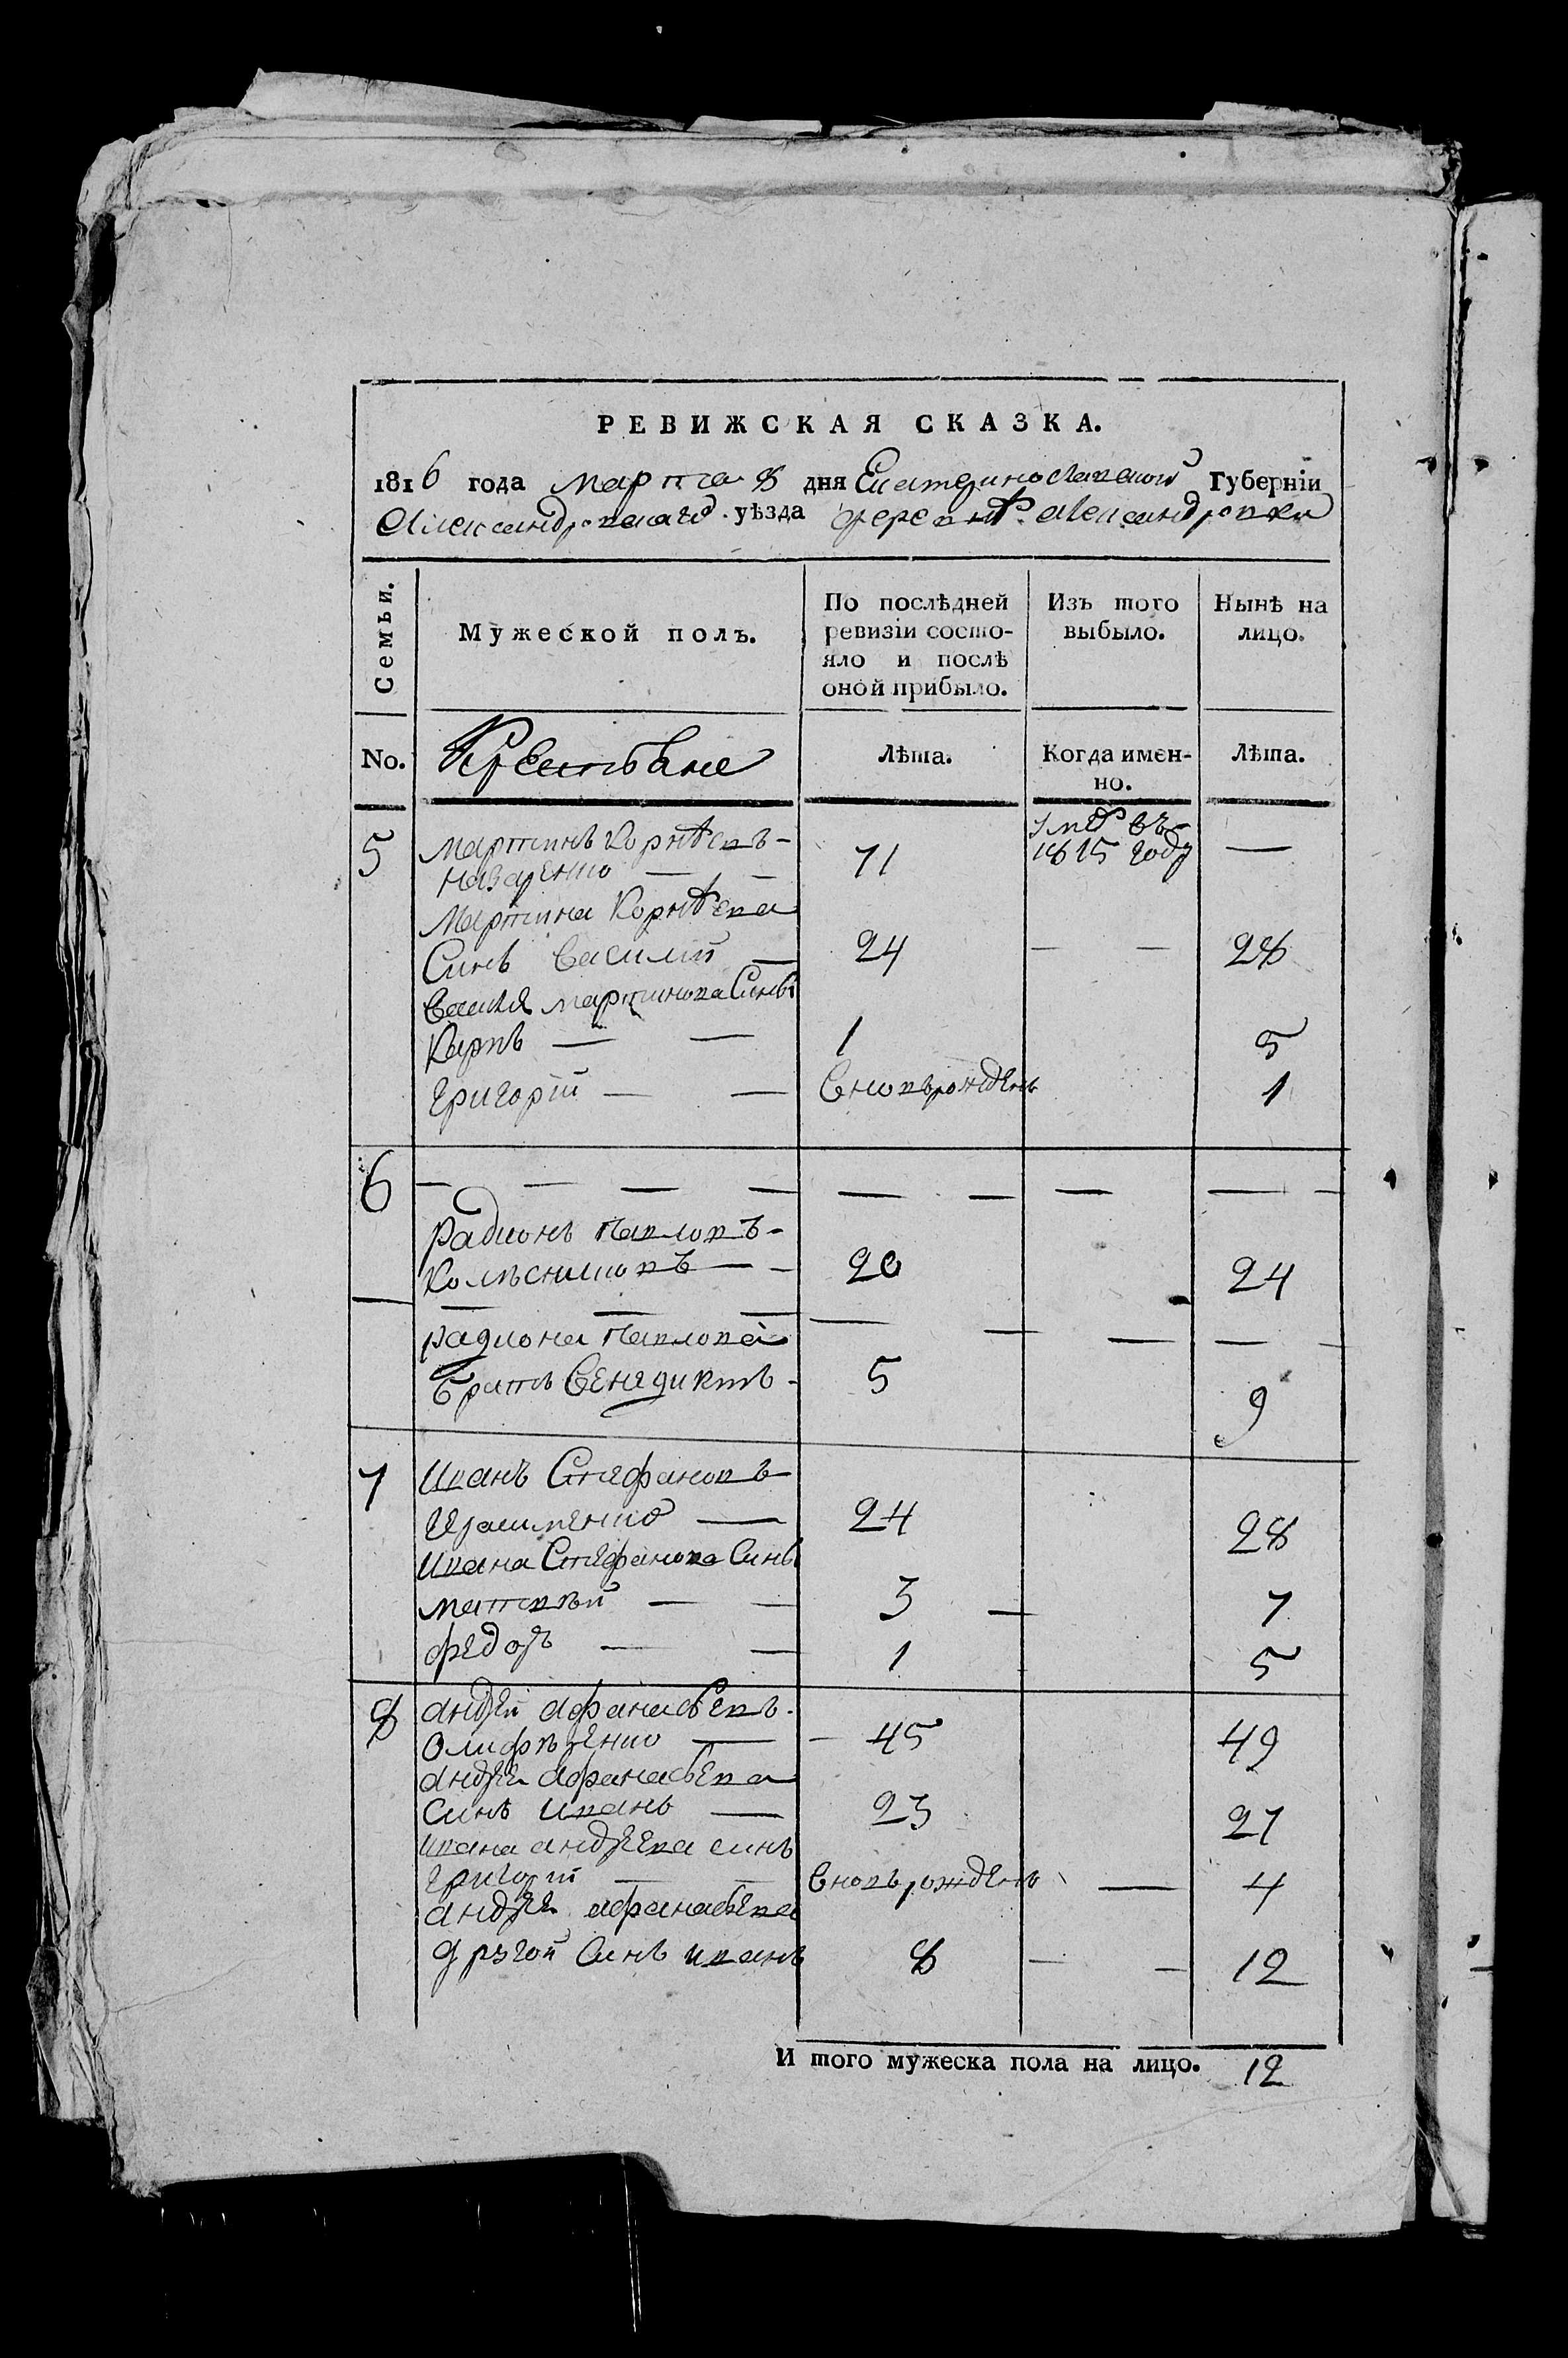 РЕВИЖСКАЯ СКАЗКА.
1816 года марта 8 дня Екатеринославской Губернїи
Александровскаго уѣзда деревнѣ Александровки
Семьи.
Мужеской полъ.
По послѣдней ревизїи состояло и послѣ оной прибыло.
Изъ того выбыло.
Нынѣ на лицо.
No. Крестьяне Лѣта. Когда именно. Лѣта.
5 Мартинъ Корнѣевъ - умѣ въ
Назаренко — - 71 1815 году —
Мартина Корнѣева
Синъ Василий — 24 — — 28
Василя Мартинова Синъ
Карпъ — — 1 5
Григорїй — — вновьрожденъ 1
6 — — — — — — — — —
Радионъ Павловъ -
Колѣсниковъ — - 20 24
— — — — — — — -
Радиона Павлова
братъ Венедиктъ - 5 9
7 Иванъ Стефановъ
Герасименко — 24 28
Ивана Стефанова Синъ
Матвѣй — — 3 — 7
Федоръ — — 1 5
8 Андрей Афанасьевъ.
Олифѣренко — - 45 49
Андрея Афанасьева
Синъ Иванъ — 23 27
Ивана Андреева синъ
Григорїй — — вновьрожденъ — 4
Андрея Афанасьева
другой Синъ Иванъ 8 — — 12
И того мужеска пола на лицо. 12